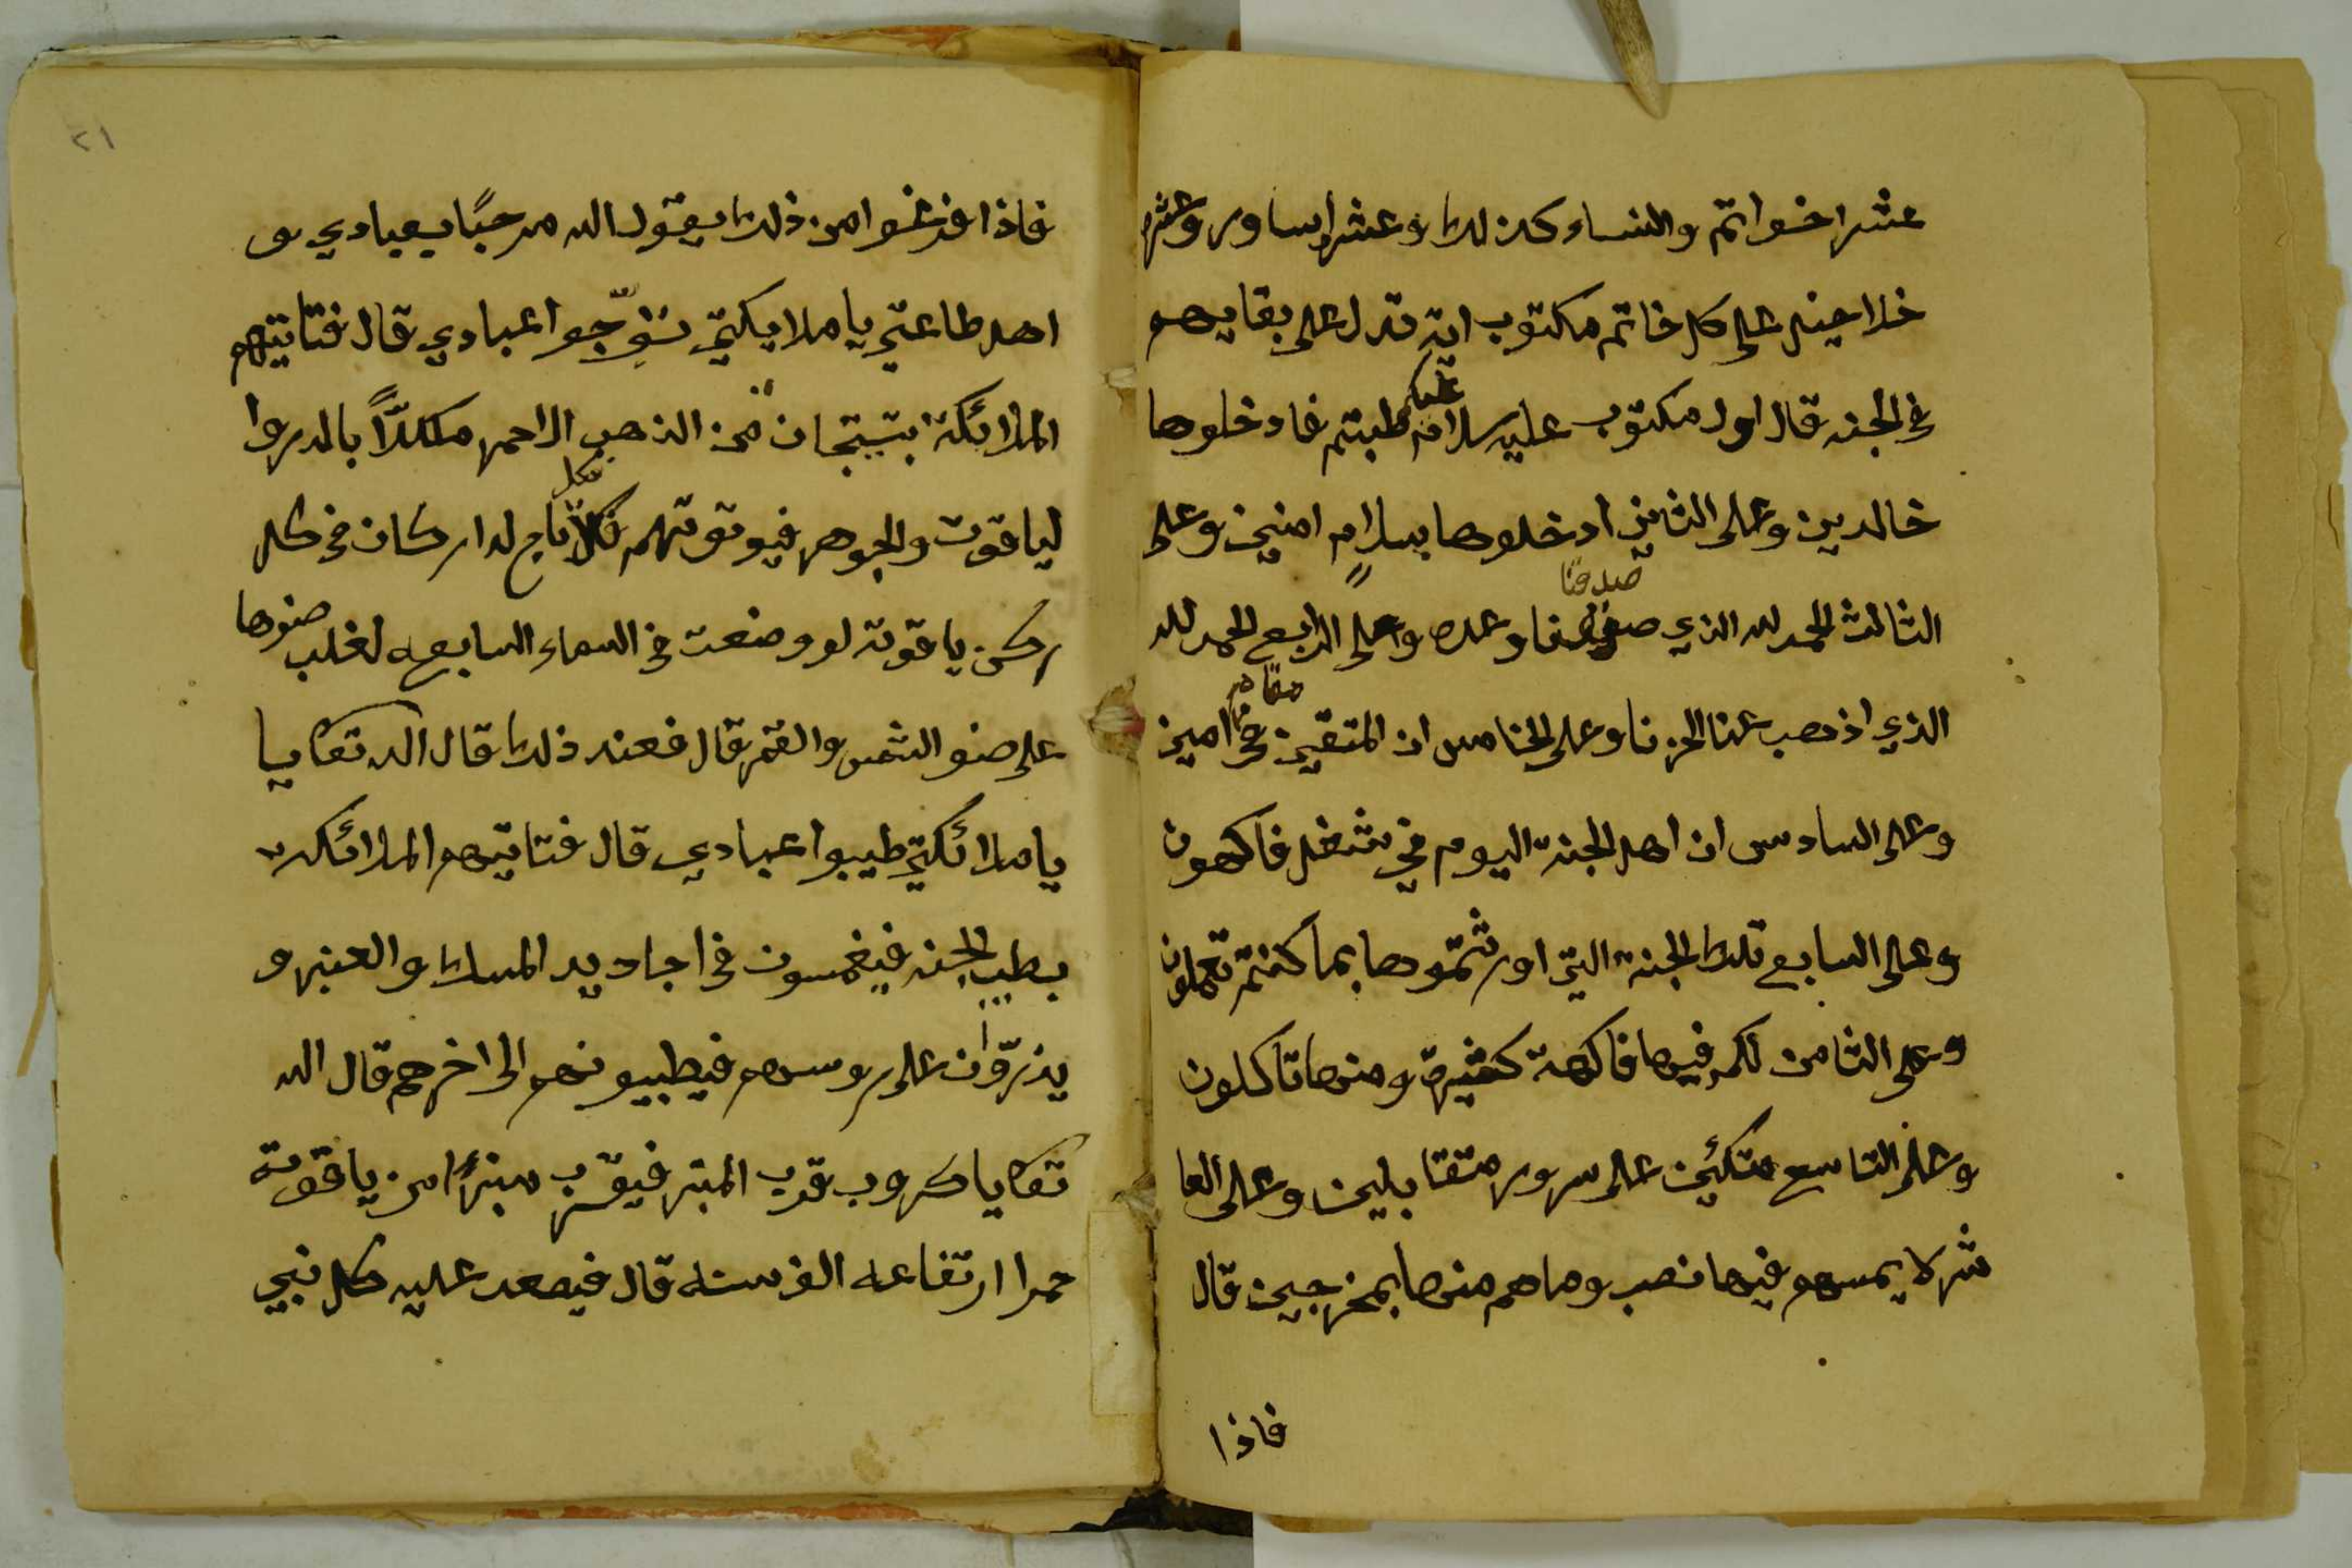 عشر اخواتم والنساء كذلك وعشر اساور وعشر
خلاخيل على كل خاتم مكتوب اية تدل على بقايهم
في الجنه قال اول مكتوب عليه سلام عليكم طبتم فادخلوها
خالدين وعلى الثاني ادخلوها بسلام امنين وعلى
الثالث الحمد لله الذي صدقنا وعده وعلى الرابع الحمد لله
الذي اذهب عنا الحزنا وعلى الخامس ان المتقين في مقام امين
وعلى السادس ان اهل الجنة اليوم في شغل فاكهون
وعلى السابع تلك الجنة التي اورثتموها بما كنتم تعملون
وعلى الثامن لكم فيها فاكهة كثيرة ومنها تاكلون
وعلى التاسع متكئين على سرور متقابلين وعلى العا
شر لا يمسهم فيها نصب وماهم منها بمخرجين قال
فاذا
٢١
فاذا فرغوا من ذلك يقول الله مرحبًا بعبادي و
اهل طاعتي يا ملايكتي توّجوا عبادي قال فتاتيهم
الملائكة بتيجان من الذهب الاحمر مكللاً بالدر وا
لياقوت والجوهر فيوتوتهم فكل تاج له اركان في كل
ركن ياقوتة لو وضعت في السماء السابعه لغلب ضوها
على ضو الشمس والقمر قال فعند ذلك قال الله تعا يا
يا ملائكتي طيبوا عبادي قال فتاتيهم الملائكة
بطيب الجنه فيغمسون في اجاديد المسك والعنبر و
يذرّون على روسهم فيطيبونهم الى اخرهم قال الله
تعا يا كروب قرب المنبر فيقرب منبرًا من ياقوتة
حمرا ارتفاعه الف سنه قال فيصعد عليه كل نبي